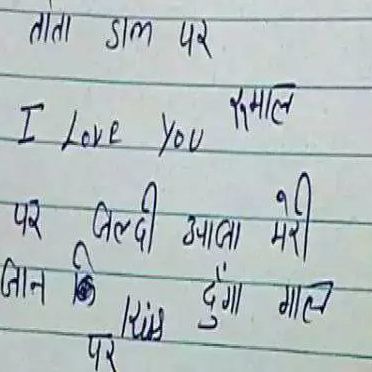 तोता डाल पर
I Love You रूमाल
पर जल्दी आजा मेरी
जान कि Kiss दुँगा गाल
पर